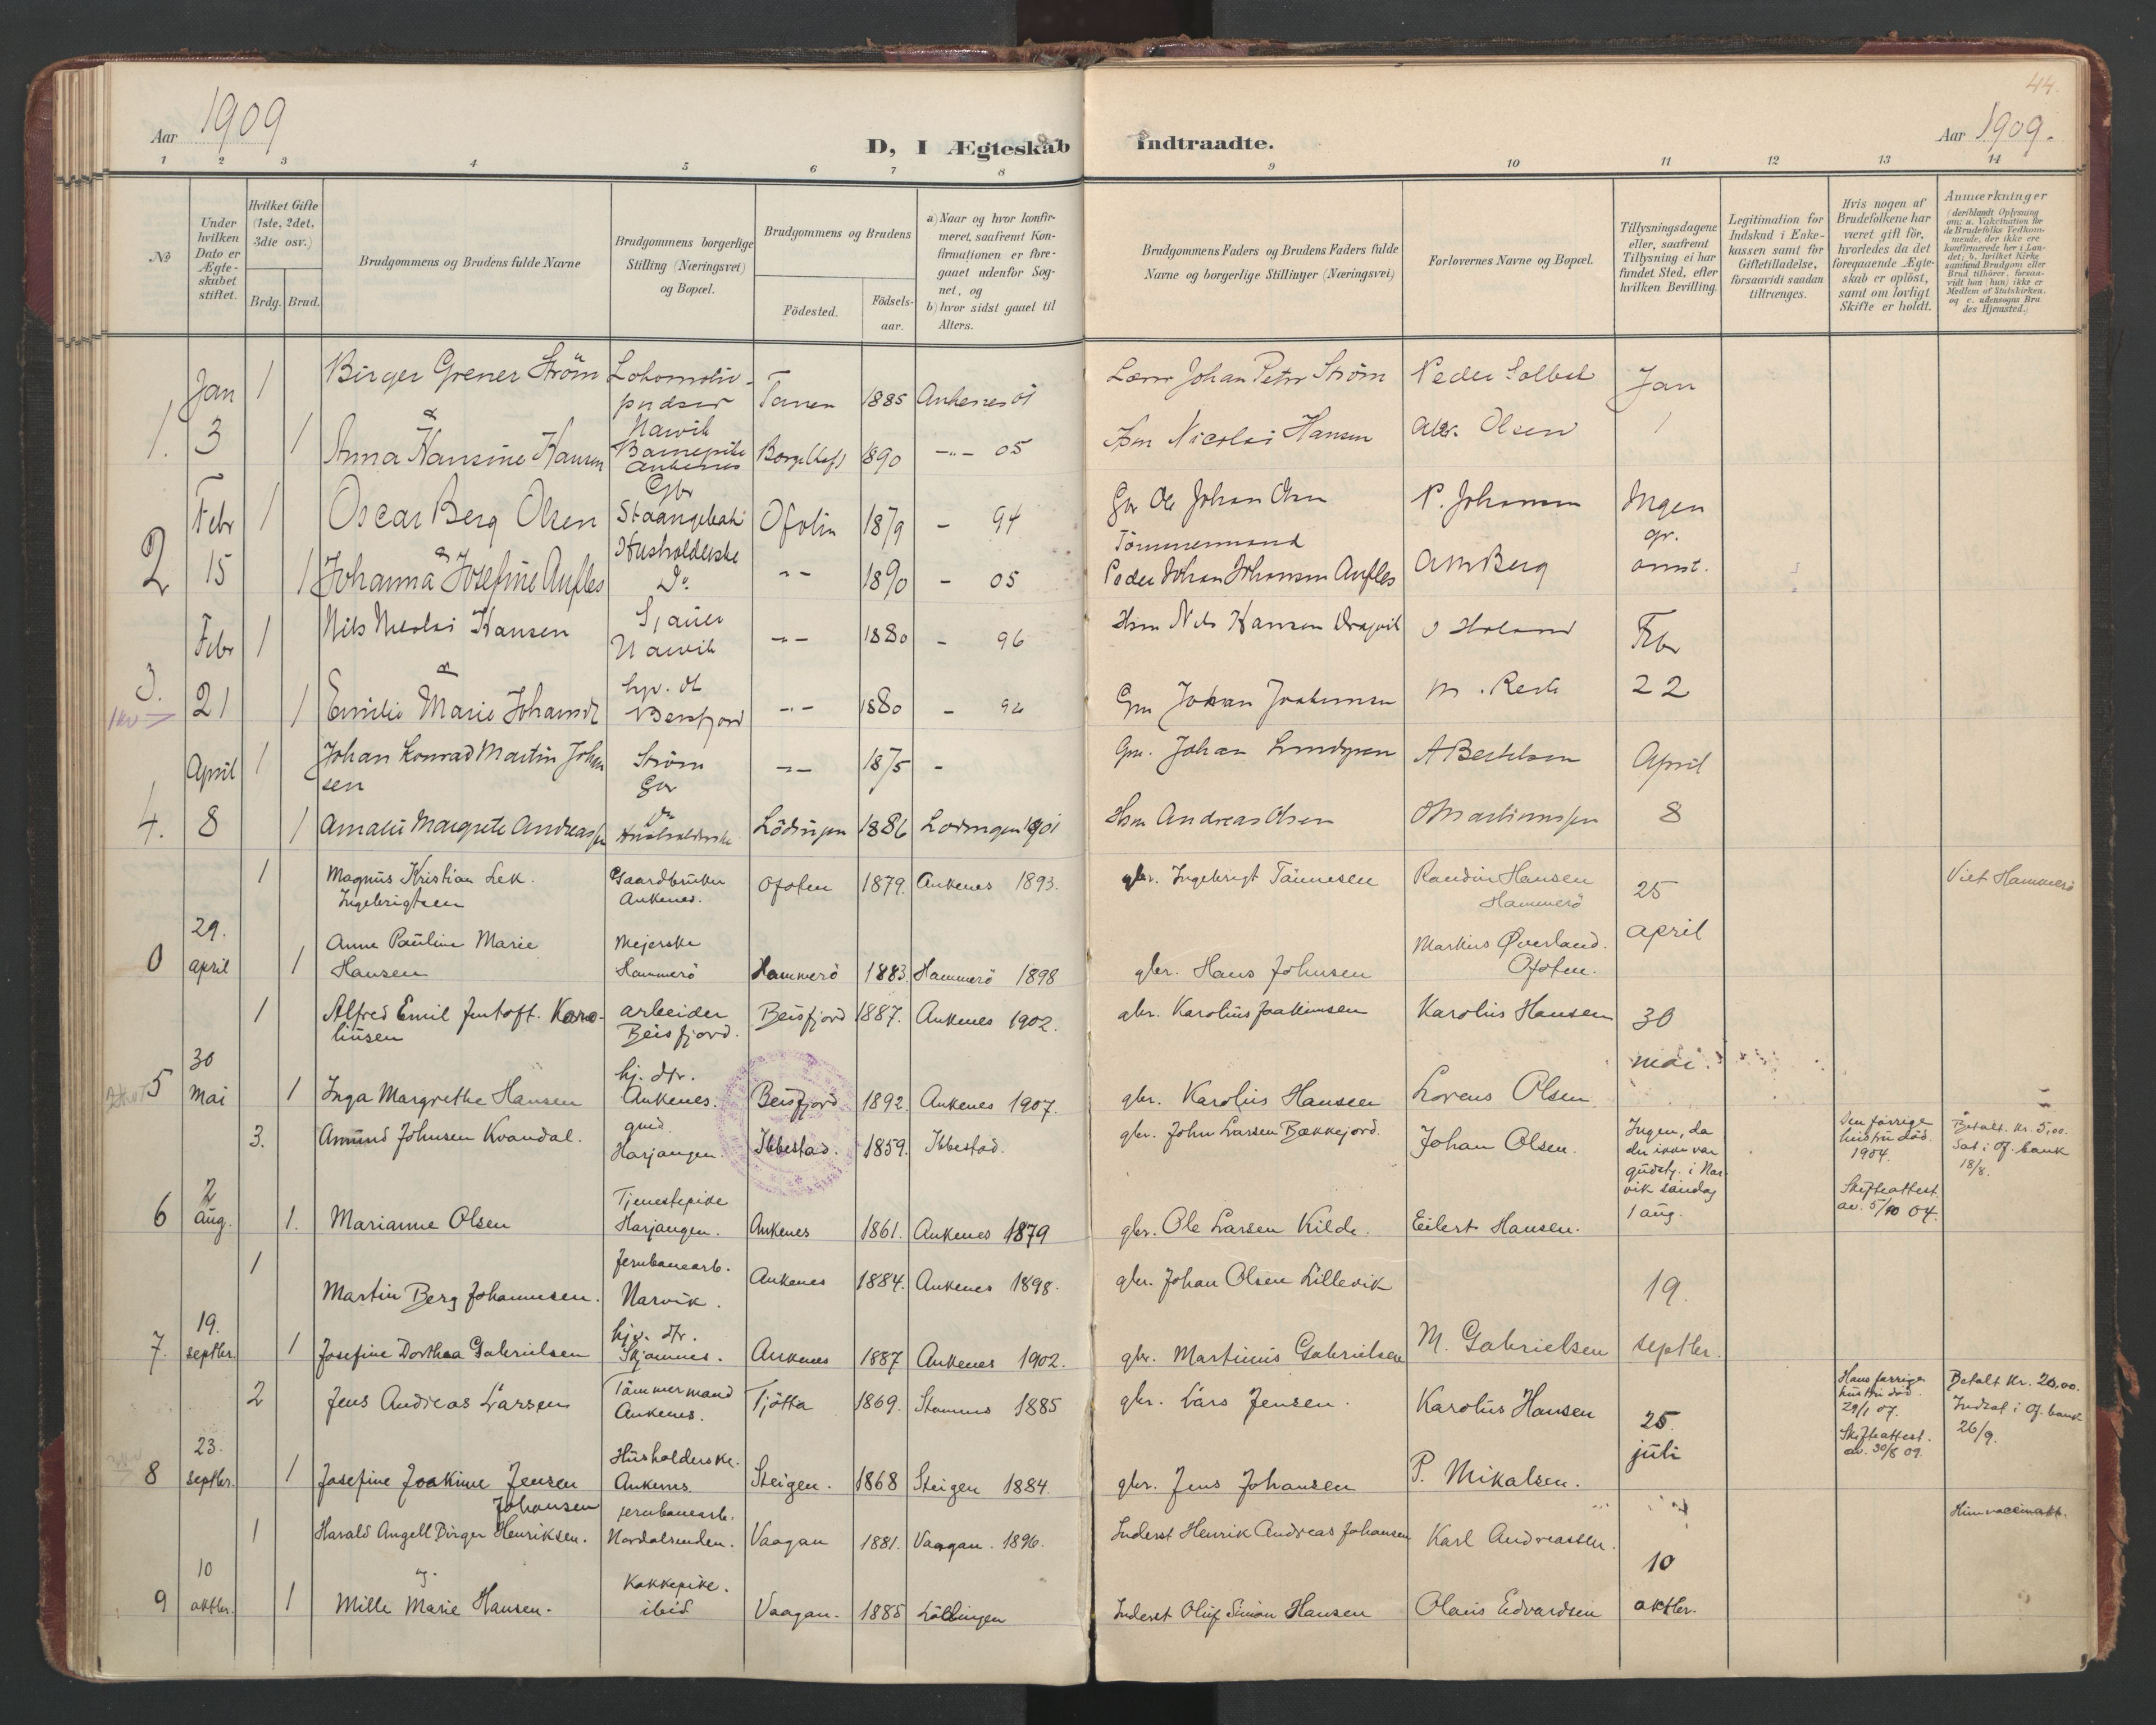 44.
Aar 1909
D, I Ægteskab Indtraadte.
Aar 1909.
1 2 3 4 5 6 7 8 9 10 11 12 13 14
No
Under hvilken Dato er Ægteskabet stiftet.
Hvilket Gifte (1ste, 2det, 3die osv.)
Brdg. Brud.
Brudgommens og Brudens fulde Navne
Brudgommens borgerlige Stilling (Næringsvei) og Bopæl.
Brudgommens og Brudens
Fødested.
Fødselsaar.
a) Naar og hvor konfirmeret, saafremt Konfirmationen er foregaaet udenfor Sognet, og
b) hvor sidst gaaet til Alters.
Brudgommens Faders og Brudens Faders fulde Navne og borgerlige Stillinger (Næringsvei)
Forlovernes Navne og Bopæl.
Tillysningsdagene eller, saafremt Tillysning ei har fundet Sted, efter hvilken Bevilling.
Legitimation for Indskud i Enkekassen samt for Giftetilladelse, forsaavidt saadan tiltrænges.
Hvis nogen af Brudefolkene har været gift før, hvorledes da det foregaaende Ægteskab er opløst, samt om lovligt Skifte er holdt.
Anmærkninger
(deriblandt Oplysning om: a. Vakcination for de Brudefolks Vedkommende, der ikke ere konfirmerede her i Landet; b. hvilket Kirkesamfund Brudgom eller Brud tilhører, forsaavidt han (hun) ikke er Medlem af Statskirken. og c. udensogns Brudes Hjemsted.)
1. Jan 3
1 Birger Grener Strøm Lokomotivpudser Narvik Tanen 1885 Ankenes 01 Johan Peter Strøm Peder Solbak Jan
&
1 Anna Hansine Hansen Barnepike Ankenes 1890 -"- 05 Hsm Nicolai Hansen Alb. Olsen
2 Febr 15
1 Oscar Berg Olsen Gbr Ofoten 1879 - 94 Gbr Ole Johan Olsen P. Johansen Ingen
&
1 Johanna Josefine Aufles Husholderske Do -"- 1890 - 05 Tømmermand Peder Johan Johansen Aufles A M Berg
3. Febr 21
1 Nils Nikolai Hansen Sjauer Narvik -"- 1880 - 96 Hsm Nils Hansen Febr
&
1 Emilie Marie Johansdt Beisfjord -"- 1880 - Gm Johan Joakimsen 22
4. April 8
1 Johan Konrad Martin Johansen Strøm Gbr -"- 1875 - Gm. Johan A Bertelsen April
1 Amalie Margrete Andreassen Husholderske Lødingen 1886 Lødingen 1901 Hsm Andreas Olsen 8
0 29. april
1 Magnus Kristian Lek. Ingebrigtsen Gaardbruker Ankenes. Ofoten 1879. Ankenes 1893. gbr. Ingebrigt Tännesen Randin Hansen Hammerö 25 april Viet Hammerö
1 Anne Pauline Marie Hansen Mejerske Hammerö Hammerö 1883. Hammerö 1898 gbr. Hans Johnsen Markus Øverland. Ofoten.
5 30 mai
1 Alfred Emil Jentoft. Karoliusen arbeider Beisfjord. Beisfjord 1887. Ankenes 1902. gbr. Karolius Joakimsen Karolius Hansen 30 mai.
1 Inga Margrethe Hansen hj. dtr. Ankenes. Beisfjord 1892. Ankenes 1907. gbr. Karolius Hansen Lorens Olsen
6 2 aug.
3. Amund Johnsen Kvandal. Harjangen. Ibbestad. 1859. Ibbestad. gbr. John Larsen Bækkejord. Johan Olsen. Ingen, da der ikke var gudstj. i Narvik søndag 1 aug. Den forrige hustru død. 1904. Skifteattest. av. 5/10 04. Betalt. kr. 5,00. Sat i Of. bank 18/8.
1. Marianne Olsen Tjenestepike Harjangen. Ankenes 1861. Ankenes 1879 gbr. Ole Larsen Kilde. Eilert Hansen.
7. 19. septbr.
1 Martin Berg Johannesen. Jernbanearb. Narvik. Ankenes 1884. Ankenes 1898. gbr. Johan Olsen Lillevik 19. septbr.
1 Josefine Dorthea Gabrielsen hjv. dtr. Skjomnes. Ankenes 1887 Ankenes 1902. gbr. Martinus Gabrielsen M. Gabrielsen
8 23. septbr.
2 Jens Andreas Larsen Tömmermand Ankenes. Tjötta 1869. Stamnes 1885 gbr. Lars Jensen. Karolius Hansen 25. juli Hans forrige hustru död. 29/1 07. Skifteattest. av. 30/8 09. Betalt Kr. 20,00. Indsat i Of. bank 26/9.
1 Josefine Joakime Jensen Husholderske. Ankenes. Steigen. 1868 Steigen 1884. gbr. Jens Johansen P. Mikalsen.
9 10 oktbr.
1 Harald Angell Birger Henriksen. Johansen jernbanearb. Nordalsenden. Vaagan 1881. Vaagan. 1896. Inderst Henrik Andreas Johansen Karl Andreassen. 10 oktbr.
og.
1 Mille Marie Hansen. Kokkepike. ibid Vaagan. 1885 Lödingen Inderst Oluf Simon Hansen Olaus Edvardsen